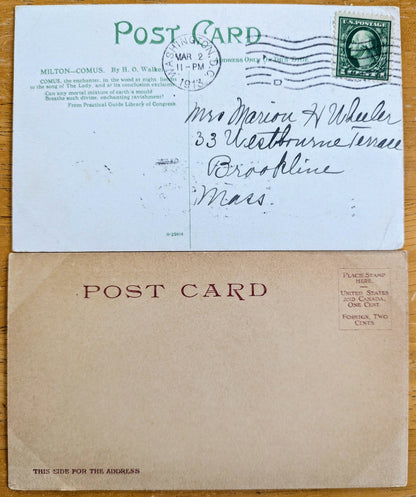 POST CARD
WASHINGTON, D.C.
MAR 2
11-PM
U.S. POSTAGE
MILTON—COMUS. By H. O. Walker
COMUS, the enchanter, in the wood at night,
to the song of The Lady, and at its conclusion exclaims:
Can any mortal mixture of earth's mould
Breathe such divine, enchanting ravishment!
From Practical Guide Library of Congress.
Mrs Marion H Wheeler
33 Westbourne Terrace
Brookline
Mass.
POST CARD
PLACE STAMP
HERE.
UNITED STATES
AND CANADA,
ONE CENT.
FOREIGN, TWO
CENTS.
THIS SIDE FOR THE ADDRESS